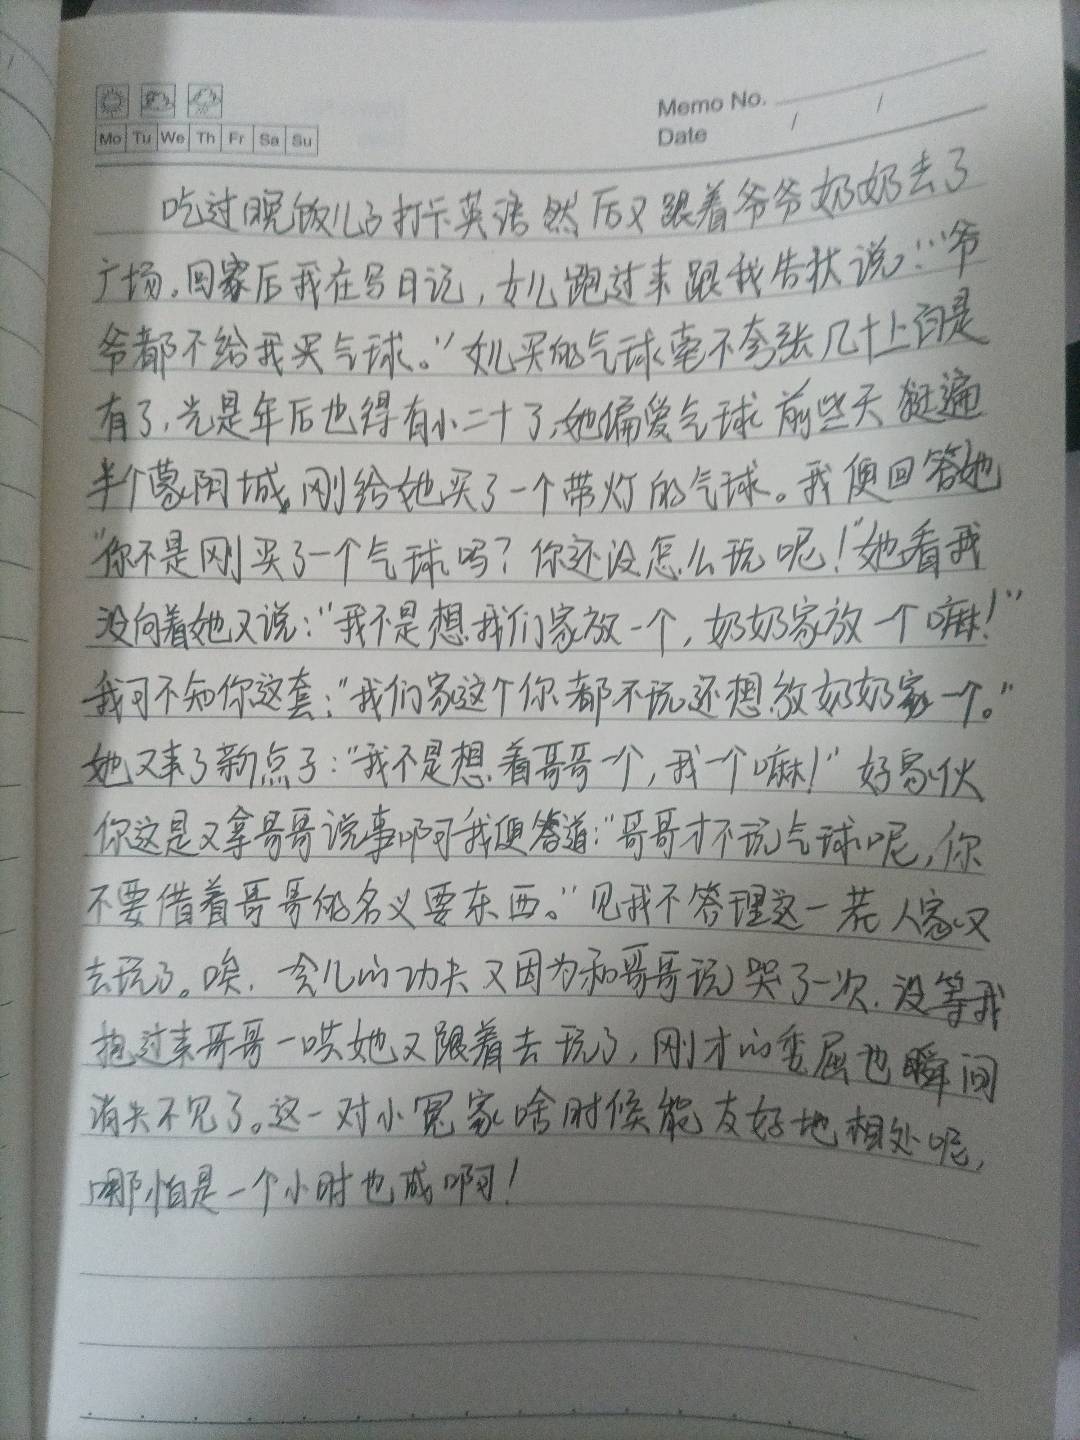 Memo No.
Mo Tu We Th Fr Sa Su
Date / /
吃过晚饭儿子打卡英语然后又跟着爷爷奶奶去了
广场。回家后我在写日记，女儿跑过来跟我告状说："爷
爷都不给我买气球。"女儿买的气球毫不夸张几十上百是
有了，光是年后也得有小二十了，她偏爱气球前些天挺遍
半个蒙阴城，刚给她买了一个带灯的气球。我便回答她
"你不是刚买了一个气球吗？你还没怎么玩呢！"她看我
没向着她又说："我不是想我们家放一个，奶奶家放一个嘛！"
我可不知你这套："我们家这个你都不玩还想放奶奶家一个。"
她又来了新点子："我不是想着哥哥一个，我一个嘛！"好家伙
你这是又拿哥哥说事啊我便答道："哥哥才不玩气球呢，你
不要借着哥哥的名义要东西。"见我不答理这一茬人家又
去玩了。唉，会儿的功夫又因为和哥哥玩哭了一次，没等我
抱过来哥哥一哄她又跟着去玩了，刚才的委屈也瞬间
消失不见了。这一对小冤家啥时候能友好地相处呢，
哪怕是一个小时也成啊！